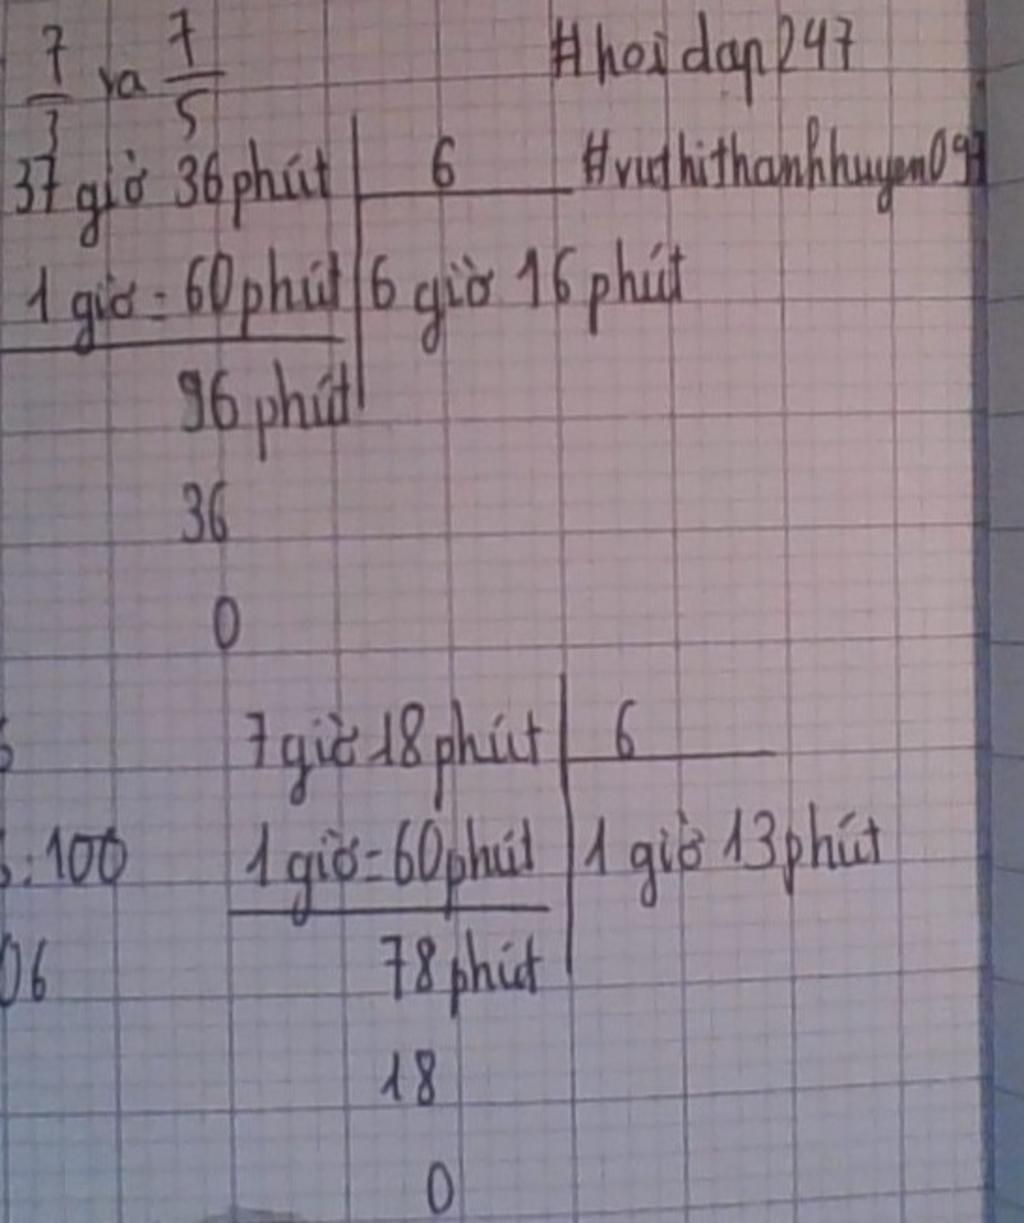 7/3 và 7/5 #hoidap247
37 giờ 36 phút | 6 #vuthithanhhuyen097
1 giờ = 60 phút | 6 giờ 16 phút
96 phút
36
0
7 giờ 18 phút | 6
: 100 1 giờ = 60 phút | 1 giờ 13 phút
06 78 phút
18
0